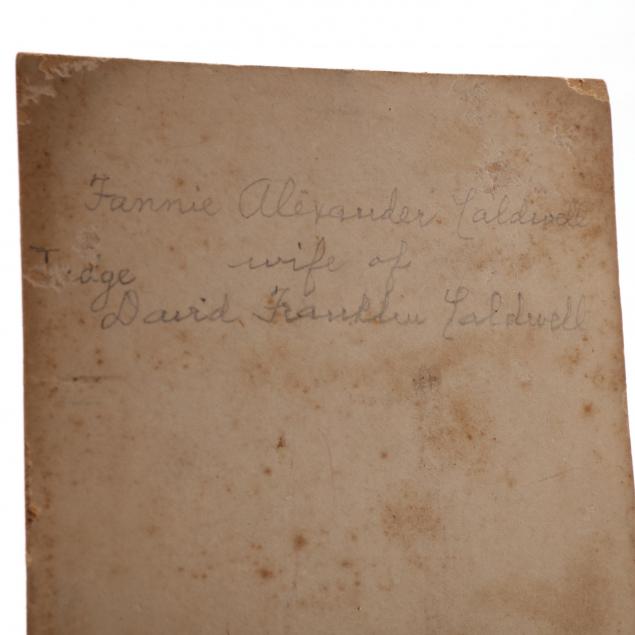 Fannie Alexander Caldwell
wife of
Judge
David Franklin Caldwell